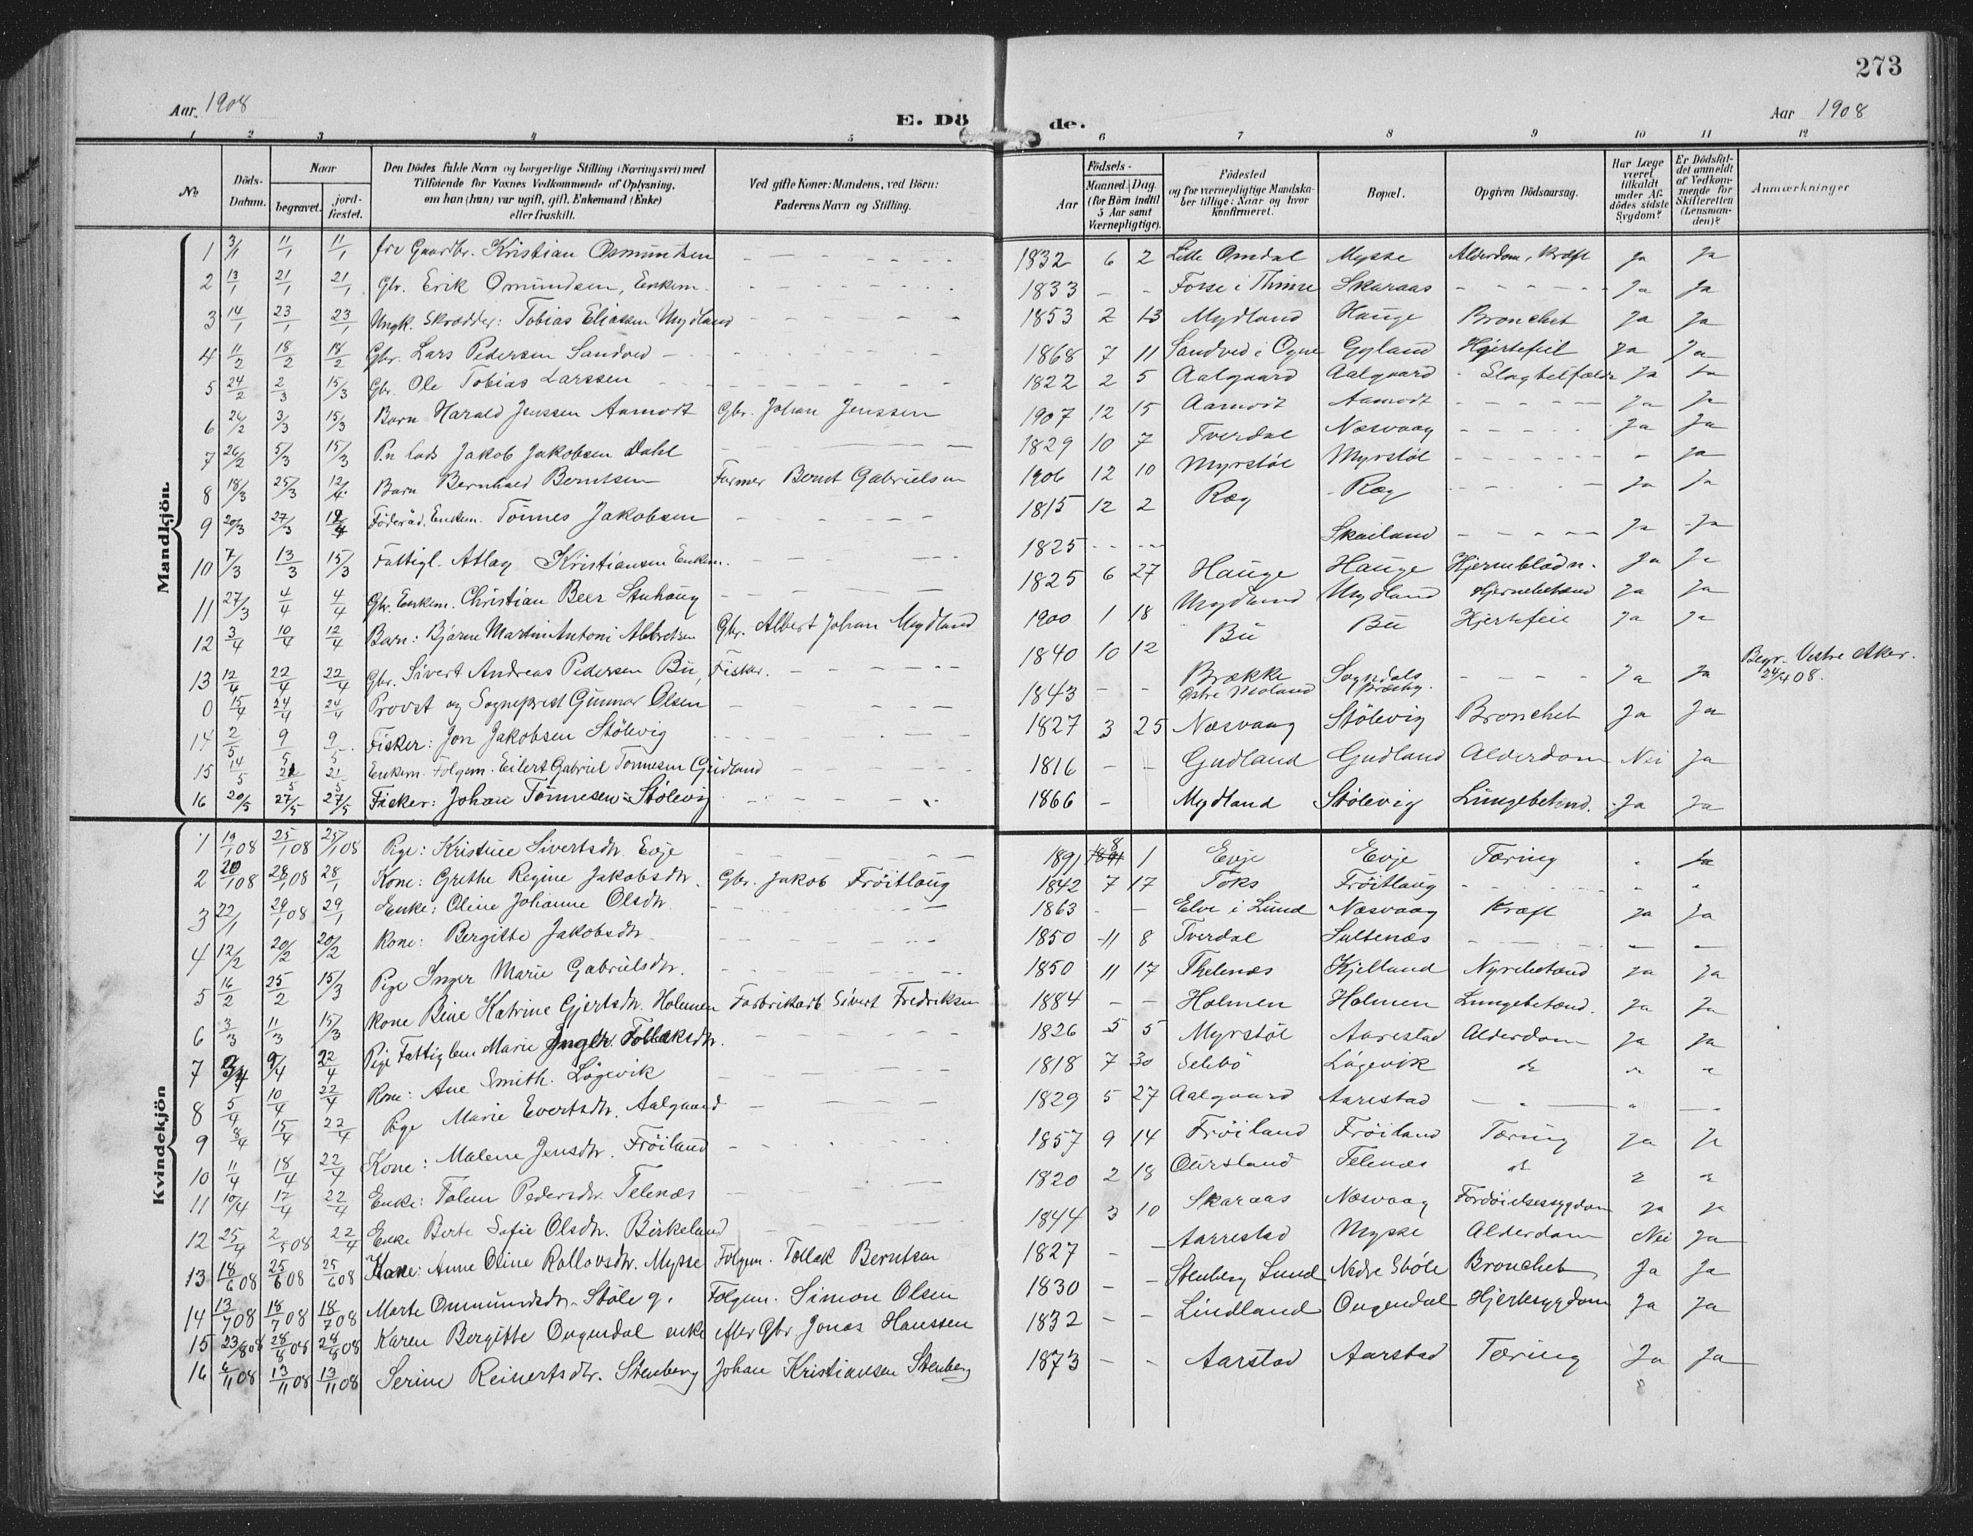 273
Aar 1908
E. Dö de.
Aar 1908
1 2 3 4 5 6 7 8 9 10 11 12
No
Döds-Datum.
Naar
begravet.
jordfæstet.
Den Dödes fulde Navn og borgerlige Stilling (Næringsvei) med Tilföiende for Voxnes Vedkommende af Oplysning, om han (hun) var ugift, gift, Enkemand (Enke) eller fraskilt.
Ved gifte Koner: Mandens, ved Börn: Faderens Navn og Stilling.
Födsels-
Aar
Maaned. Dag.
(for Börn indtil 5 Aar samt Værnepligtige).
Födested og for værnepligtige Mandskaber tillige: Naar og hvor konfirmeret.
Bopæl.
Opgiven Dödsaarsag.
Har Læge været tilkaldt under Afdödes sidste Sygdom?
Er Dödsfaldet anmeldt af Vedkommende for Skifteretten (Lensmanden)?
Anmærkninger
Mandkjön.
1 3/1 11/1 11/1 Kristian Osmundsen 1832 6 2 Lille Omdal Mysse Alderdom, Kræft Ja Ja
2 13/1 21/1 21/1 Gbr. Erik Omundsen, Enkem. 1833 - - Skaraas Ja Ja
3 14/1 23/1 23/1 Ungk. Skrædder: Tobias Eliassen Mydland 1853 2 13 Mydland Hauge Bronchet Ja Ja
4 11/2 18/2 18/2 Gbr. Lars Pedersen Sandved 1868 7 11 Sandved i Ogne Gyland Hjertefeil Ja Ja
5 24/2 2/3 15/3 Gbr. Ole Tobias Larssen 1822 2 5 Aalgaard Aalgaard Ja Ja
6 26/2 3/3 15/3 Barn Harald Jenssen Aamodt Gbr. Johan Jenssen 1907 12 15 Aamodt Aamodt Ja Ja
7 26/2 5/3 15/3 Jakob Jakobsen Dahl 1829 10 7 Tverdal Næsvaag Ja Ja
8 18/3 25/3 12/4 Barn Bernhard Berntsen Farmer Bernt Gabrielsen 1906 12 10 Myrstöl Myrstöl - Ja
9 20/3 27/3 Föderåd. Enkem. Tönnes Jakobsen 1815 12 2 Ræg Ræg Ja Ja
10 7/3 13/3 15/3 Fattigl. Atlag Kristiansen Enkem. 1825 - - Skailand Ja Ja
11 27/3 4/4 4/4 Gbr. Enkem. Christian Beer Stuhaug 1825 6 27 Hauge Hauge Hjerneblödn. Ja Ja
12 3/4 10/4 12/4 Barn: Bjarne Martin Antoni Albretsen Gbr. Albert Johan Mydland 1900 1 18 Mydland Mydland Hjernebetænd Ja Ja
13 12/4 22/4 22/4 Gbr. Sivert Andreas Pedersen Bu, Fisker. 1840 10 12 Bu Bu Hjertefeil Ja Ja
0 15/4 24/4 24/4 Provst og Sogneprest Gunnar Olsen 1843 - - Brække Østre Moland Sogndals Præstg. Ja Ja Begr. Vestre Aker. 24/4 08.
14 2/5 9/5 9/5 Fisker: Jon Jakobsen Stölevig 1827 3 25 Næsvaag Stölevig Bronchet Ja Ja
15 14/5 21/5 21/5 Enkem. Folgem. Eilert Gabriel Tönnesen Gudland 1816 - - Gudland Gudland Alderdom Nei Ja
16 20/5 27/5 27/5 Fisker: Johan Tönnesen Stölevig 1866 - Mydland Stölevig Lungebetænd. Ja Ja
Kvindekjön
1 19/1 08 25/1 08 25/1 08 Pige: Kristine Sivertsdtr. Evje 1891 8 1 Evje Evje Tæring Ja
2 20/1 08 28/1 08 28/1 Kone: Grethe Regine Jakobsdtr. Gbr. Jakob Fröitlaug 1842 7 17 Toks Fröitlaug
3 22/1 29/1 08 29/1 Enke: Oline Johanne Olsdtr. 1863 - - Elve i Lund Næsvaag Kræft Ja Ja
4 12/2 20/2 20/2 Kone: Bergitte Jakobsdtr. 1850 11 8 Tverdal Sultenæs
5 16/2 25/2 15/3 Pige Inger Marie Gabrielsdtr. 1850 11 17 Thelenæs Kjelland Nyrebetænd Ja Ja
6 3/3 11/3 15/3 Kone Bine Katrine Gjertsdtr. Holmen Fabrikarb Sivert Fredriksen 1884 - - Holmen Holmen Lungebetænd. Ja Ja
7 9/4 22/4 Pige Fattiglem Marie Tollaksdtr. 1826 5 5 Myrstöl Aarestad Alderdom Ja Ja
8 5/4 10/4 22/4 Kone: Ane Smith. Lögevik 1818 7 30 Selebö Lögevik do
9 8/4 15/4 22/4 Pige Marie Evertsdtr. Aalgaard 1829 5 27 Aalgaard Aarestad
10 11/4 18/4 22/4 Kone: Malene Jensdtr. Fröiland 1857 9 14 Fröiland Fröiland Tæring Ja Ja
11 10/4 17/4 22/4 Enke: Pedersdtr. Telenæs 1820 2 18 Telenæs do
12 25/4 2/5 08 22/4 Enke Berte Sofie Olsdtr. Birkeland 1844 3 10 Skaraas Næsvaag Fordöielsessygdom Ja Ja
13 18/6 08 25/6 08 25/6 08 Kone: Anne Oline Rollovsdtr. Mysse Folgem. Tollak Berntsen 1827 - - Aarrestad Mysse Alderdom Nei Ja
14 13/7 08 18/7 08 18/7 08 Marte Ommundsdtr. Stöle g. Folgem. Simon Olsen 1830 - - Stenberg Lund Nedre Stöle Bronchet Ja Ja
15 23/8 08 28/8 08 28/8 08 Karen Bergitte Ougendal enke efter Gbr Jonas Hanssen 1832 - - Lindland Ougendal Hjertesygdom Ja Ja
16 6/11 08 13/11 08 13/11 08 Serine Reinertsdtr. Stenberg Johan Kristiansen Stenberg 1873 - - Aarstad Aarstad Tæring Ja Ja